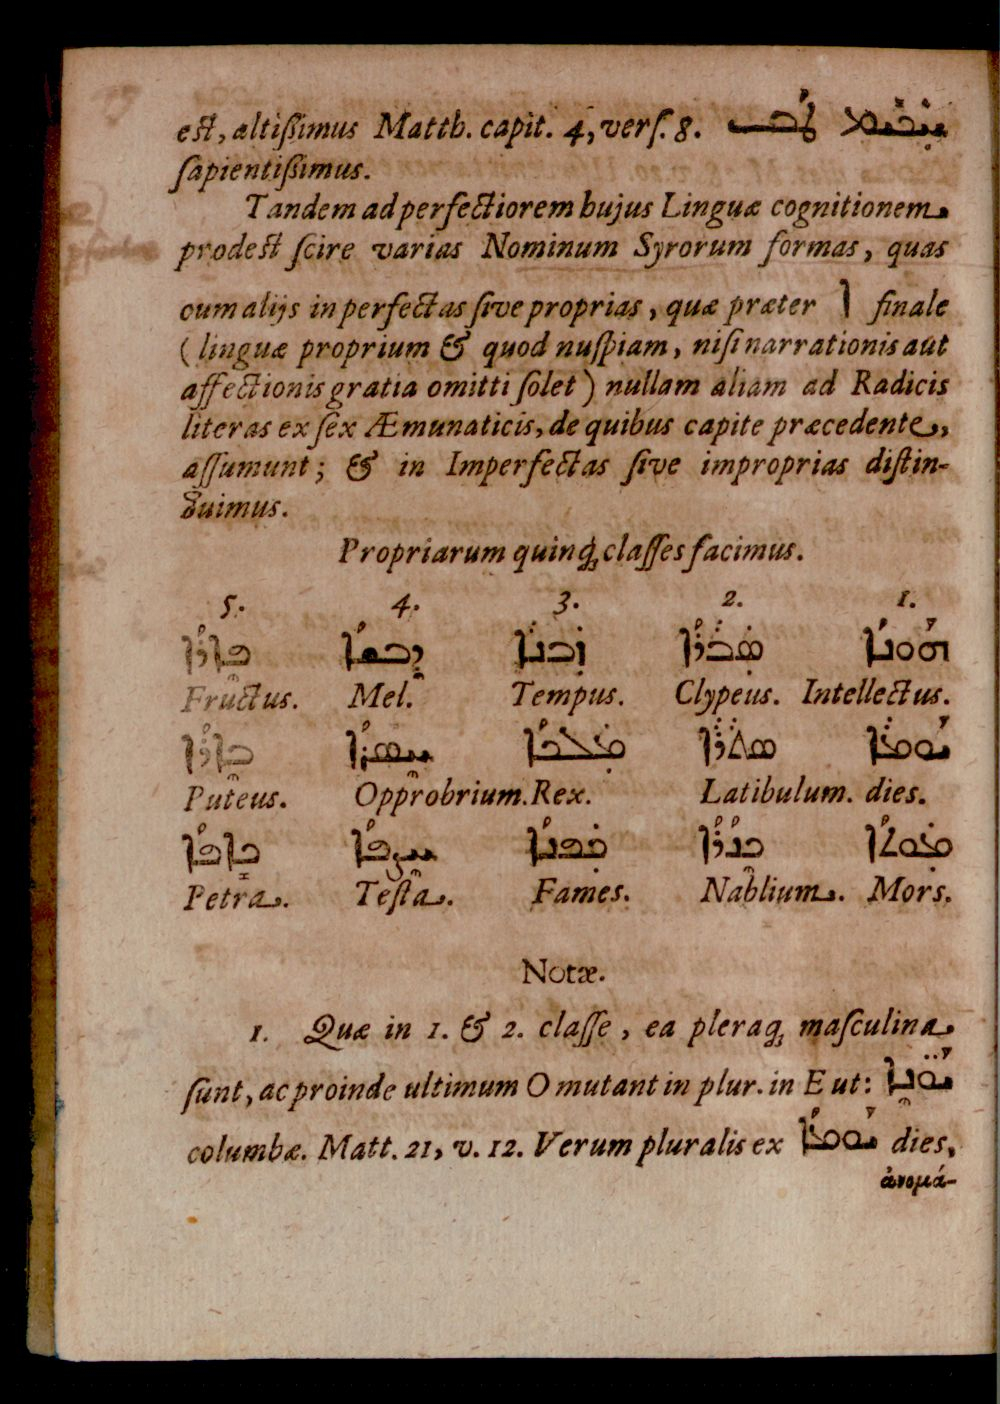 est, altißimus Matth. capit. 4, vers. 8. ܛܒ
sapientißimus.
Tandem ad perfectiorem hujus Linguæ cognitionem
prodest scire varias Nominum Syrorum formas, quas
cum alijs in perfectas sive proprias, quæ præter ܐ finale
(linguæ proprium & quod nuspiam, nisi narrationis aut
affectionis gratia omitti solet) nullam aliam ad Radicis
literas ex sex Æmunaticis, de quibus capite præcedente,
assumunt; & in Imperfectas sive improprias distin-
guimus.
Propriarum quinq; classes facimus.
5. 4. 3. 2. 1.
ܦܐܪܐ ܕܒܫܐ ܙܒܢܐ ܣܟܪܐ ܗܘܢܐ
Fructus. Mel. Tempus. Clypeus. Intellectus.
ܒܐܪܐ ܚܣܕܐ ܡܠܟܐ ܣܬܪܐ ܝܘܡܐ
Puteus. Opprobrium. Rex. Latibulum. dies.
ܟܐܦܐ ܚܨܦܐ ܟܦܢܐ ܟܢܪܐ ܡܘܬܐ
Petra. Testa. Fames. Nablium. Mors.
Notæ.
1. Quæ in 1. & 2. classe, ea pleraq; masculina
sunt, ac proinde ultimum O mutant in plur. in E ut: ܝܘܢܐ
columbæ. Matt. 21, v. 12. Verum pluralis ex ܝܘܡܐ dies,
ἀνομά-